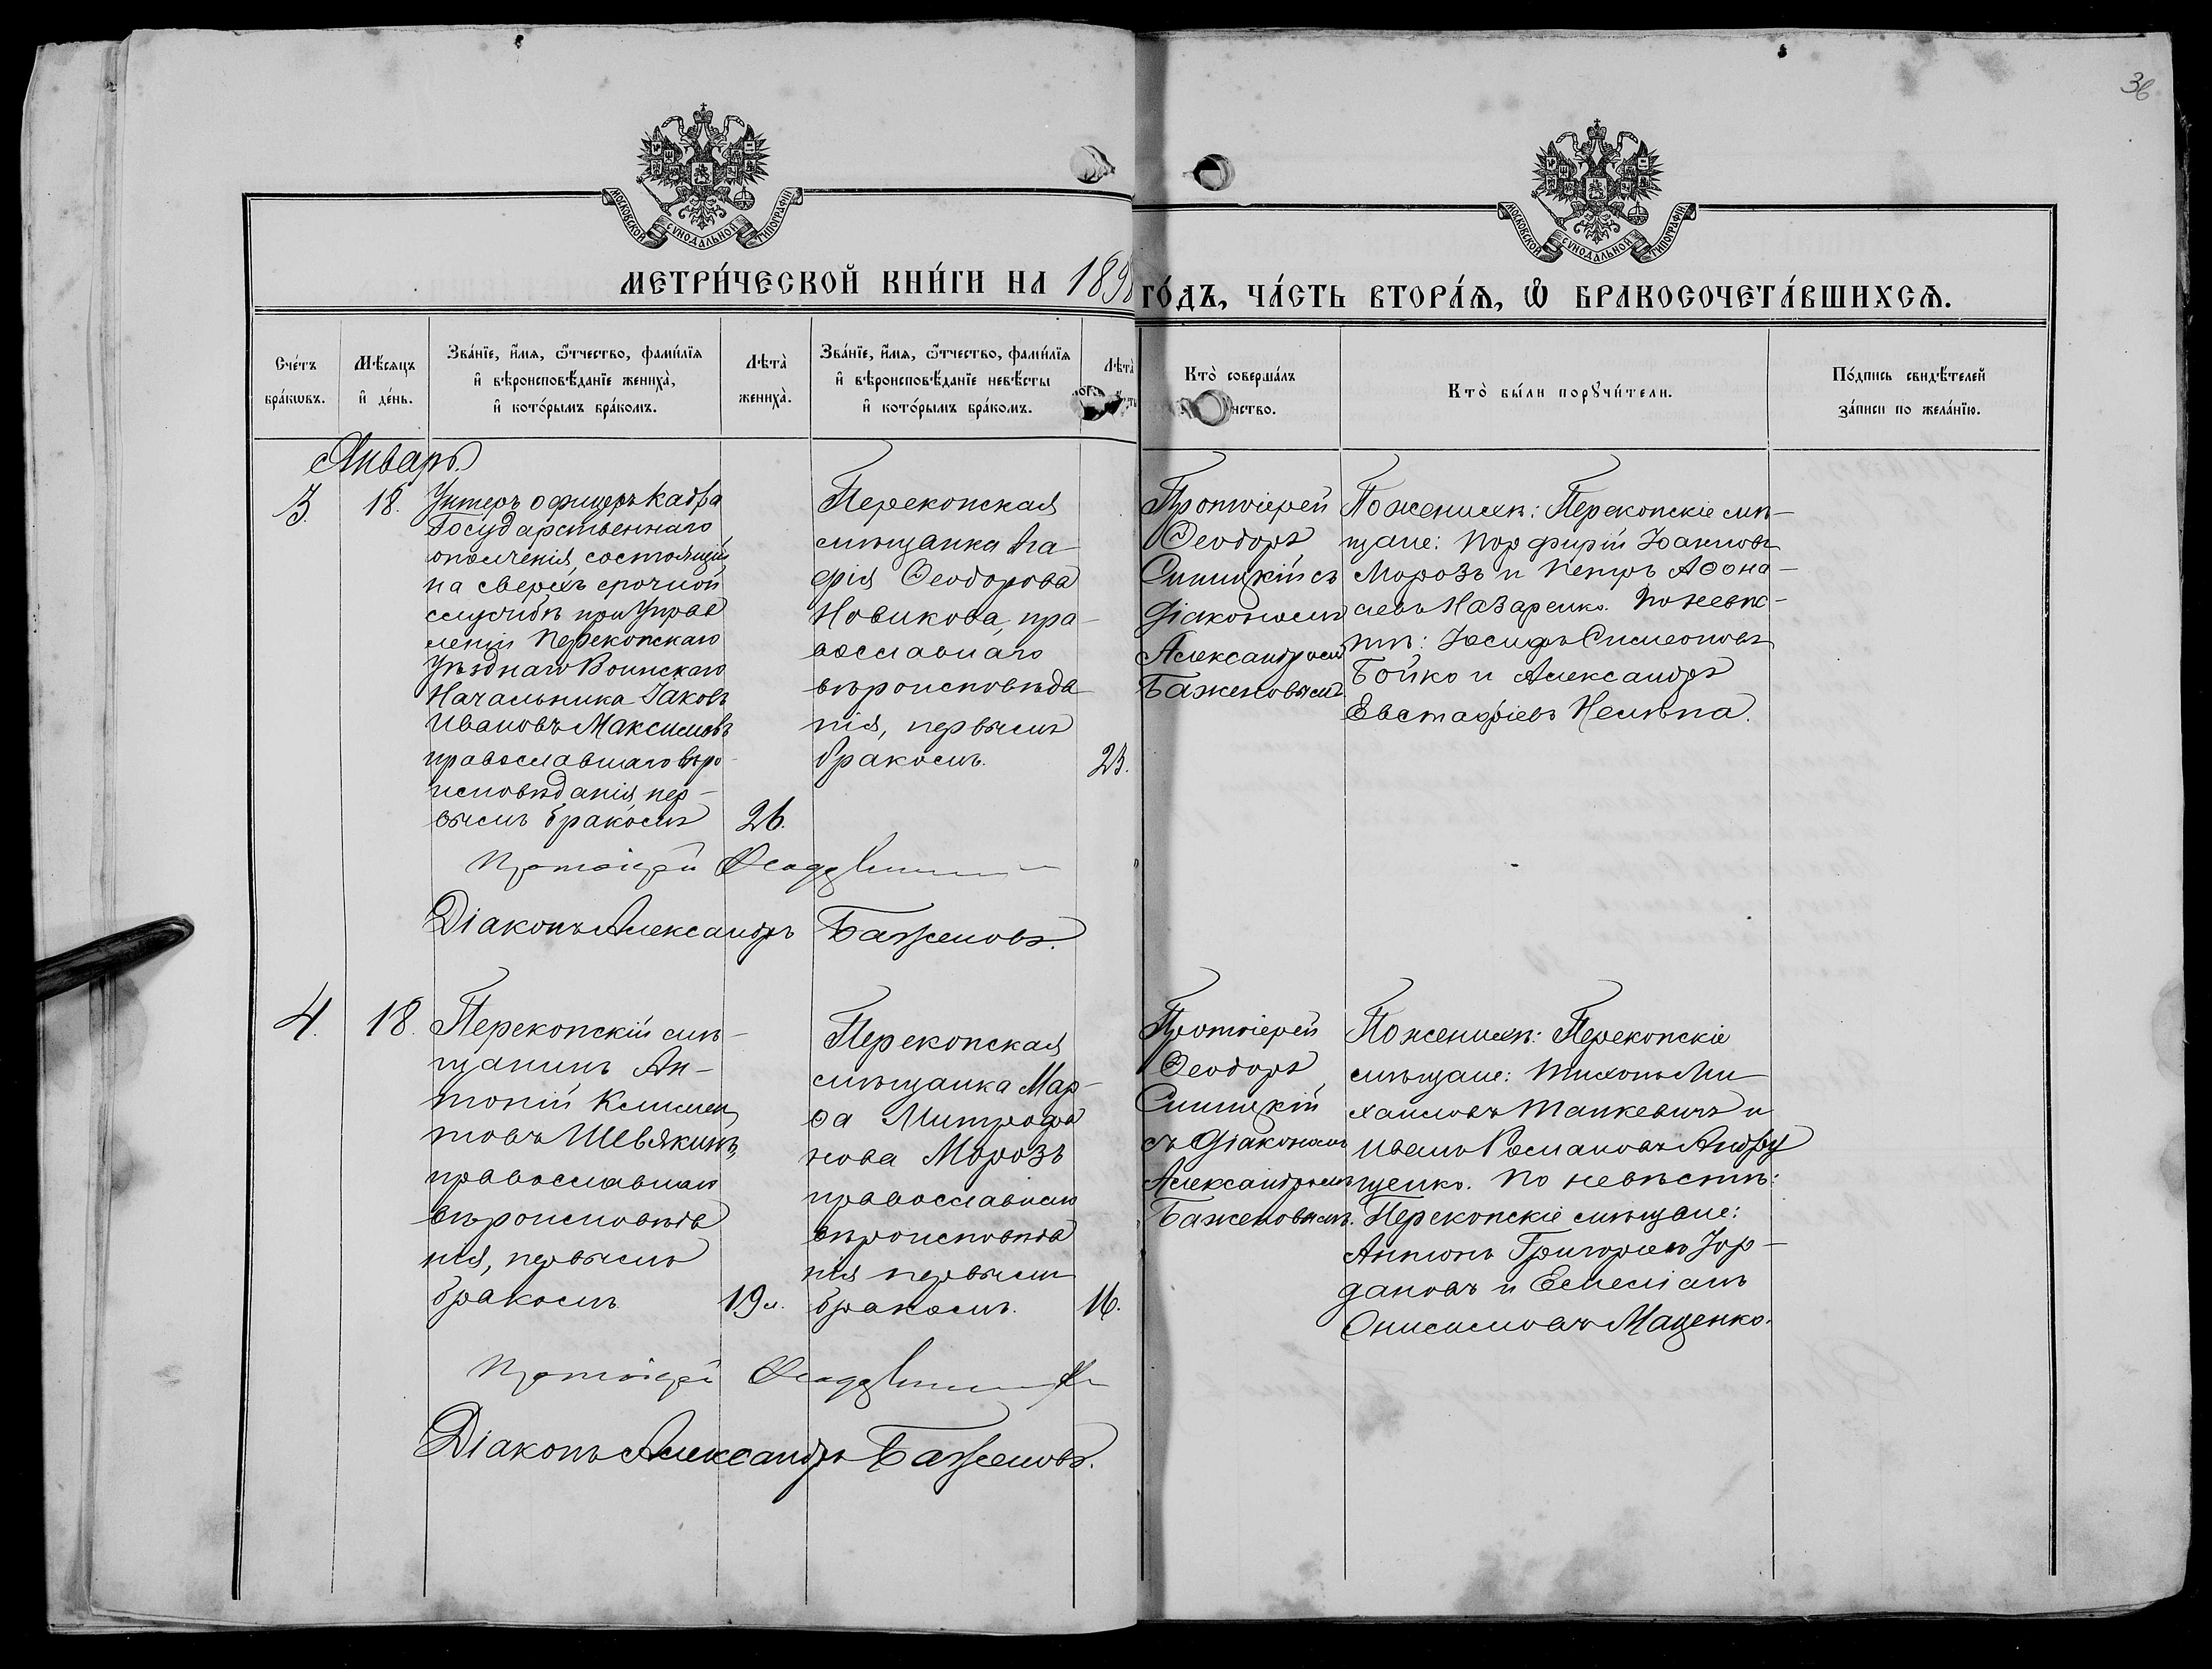 36
МОСКОВСКОЙ СУНОДАЛЬНОЙ ТИПОГРАФІИ
МОСКОВСКОЙ СУНОДАЛЬНОЙ ТИПОГРАФІИ
МЕТРИ́ЧЕСКОЙ КНИ́ГИ НА 1898
ГО́ДЪ, ЧА́СТЬ ВТОРА́Ѧ, Ѡ҆ БРАКОСОЧЕТА́ВШИХСѦ.
Сче́тъ
бра́кѡвъ.
Мѣ́сѧцъ
и҆ де́нь.
Зва́нїе, и҆́мѧ, ѻ҆́тчество, фами́лїѧ
и҆ вѣроисповѣ́данїе жениха̀,
и҆ кото́рымъ бра́комъ.
Лѣта̀
жениха̀.
Зва́нїе, и҆́мѧ, ѻ҆́тчество, фами́лїѧ
и҆ вѣроисповѣ́данїе невѣ́сты
и҆ кото́рымъ бра́комъ.
Лѣта̀
Кто̀ соверша́лъ
нство.
Кто̀ бы́ли порꙋчи́тели.
По́дпись свидѣ́телей
за́писи по жела́нїю.
Январь.
3.
18.
Унтеръ офицеръ Кадра
Государственнаго
ополченія, состоящій
на сверхъ срочной
службѣ при Управ
леніи Перекопскаго
Уѣзднаго Воинскаго
Начальника Іаковъ
Ивановъ Максимовъ
православнаго вѣро-
исповѣданія, пер-
вымъ бракомъ
26.
Перекопская
мѣщанка Ага-
фія Ѳеодорова
Новикова, пра-
вославнаго
вѣроисповѣда-
нія, первымъ
бракомъ.
23.
Протоіерей
Ѳеодоръ
Синицкій съ
Діакономъ
Александромъ
Баженовымъ
По женихѣ: Перекопскіе мѣ-
щане: Порфирій Іоакимовъ
Морозъ и Петръ Аѳона-
сіевъ Назаренко. По невѣс-
тѣ: Іосифъ Симеоновъ
Бойко и Александръ
Евстафіевъ Немѣна.
Протоіерей Ѳеодоръ
Діаконъ Александръ Баженовъ.
4.
18.
Перекопскій мѣ-
щанинъ Ан-
тоній Климен
товъ Шевякинъ,
православнаго
вѣроисповѣда
нія, первымъ
бракомъ
19 л.
Перекопская
мѣщанка Мар-
ѳа Митрофа
нова Морозъ
православнаго
вѣроисповѣда
нія первымъ
бракомъ.
16.
Протоіерей
Ѳеодоръ
Синицкій
съ Діакономъ
Александромъ
Баженовымъ.
По женихѣ: Перекопскіе
мѣщане: Тихонъ Ми-
хаиловъ Танкевичъ и
Иванъ Романовъ Андру
щенко. По невѣстѣ:
Перекопскіе мѣщане:
Антонъ Григорьевъ Іор-
дановъ и Емеліанъ
Онисимовъ Маценко.
Протоіерей Ѳеодоръ
Діаконъ Александръ Баженовъ.